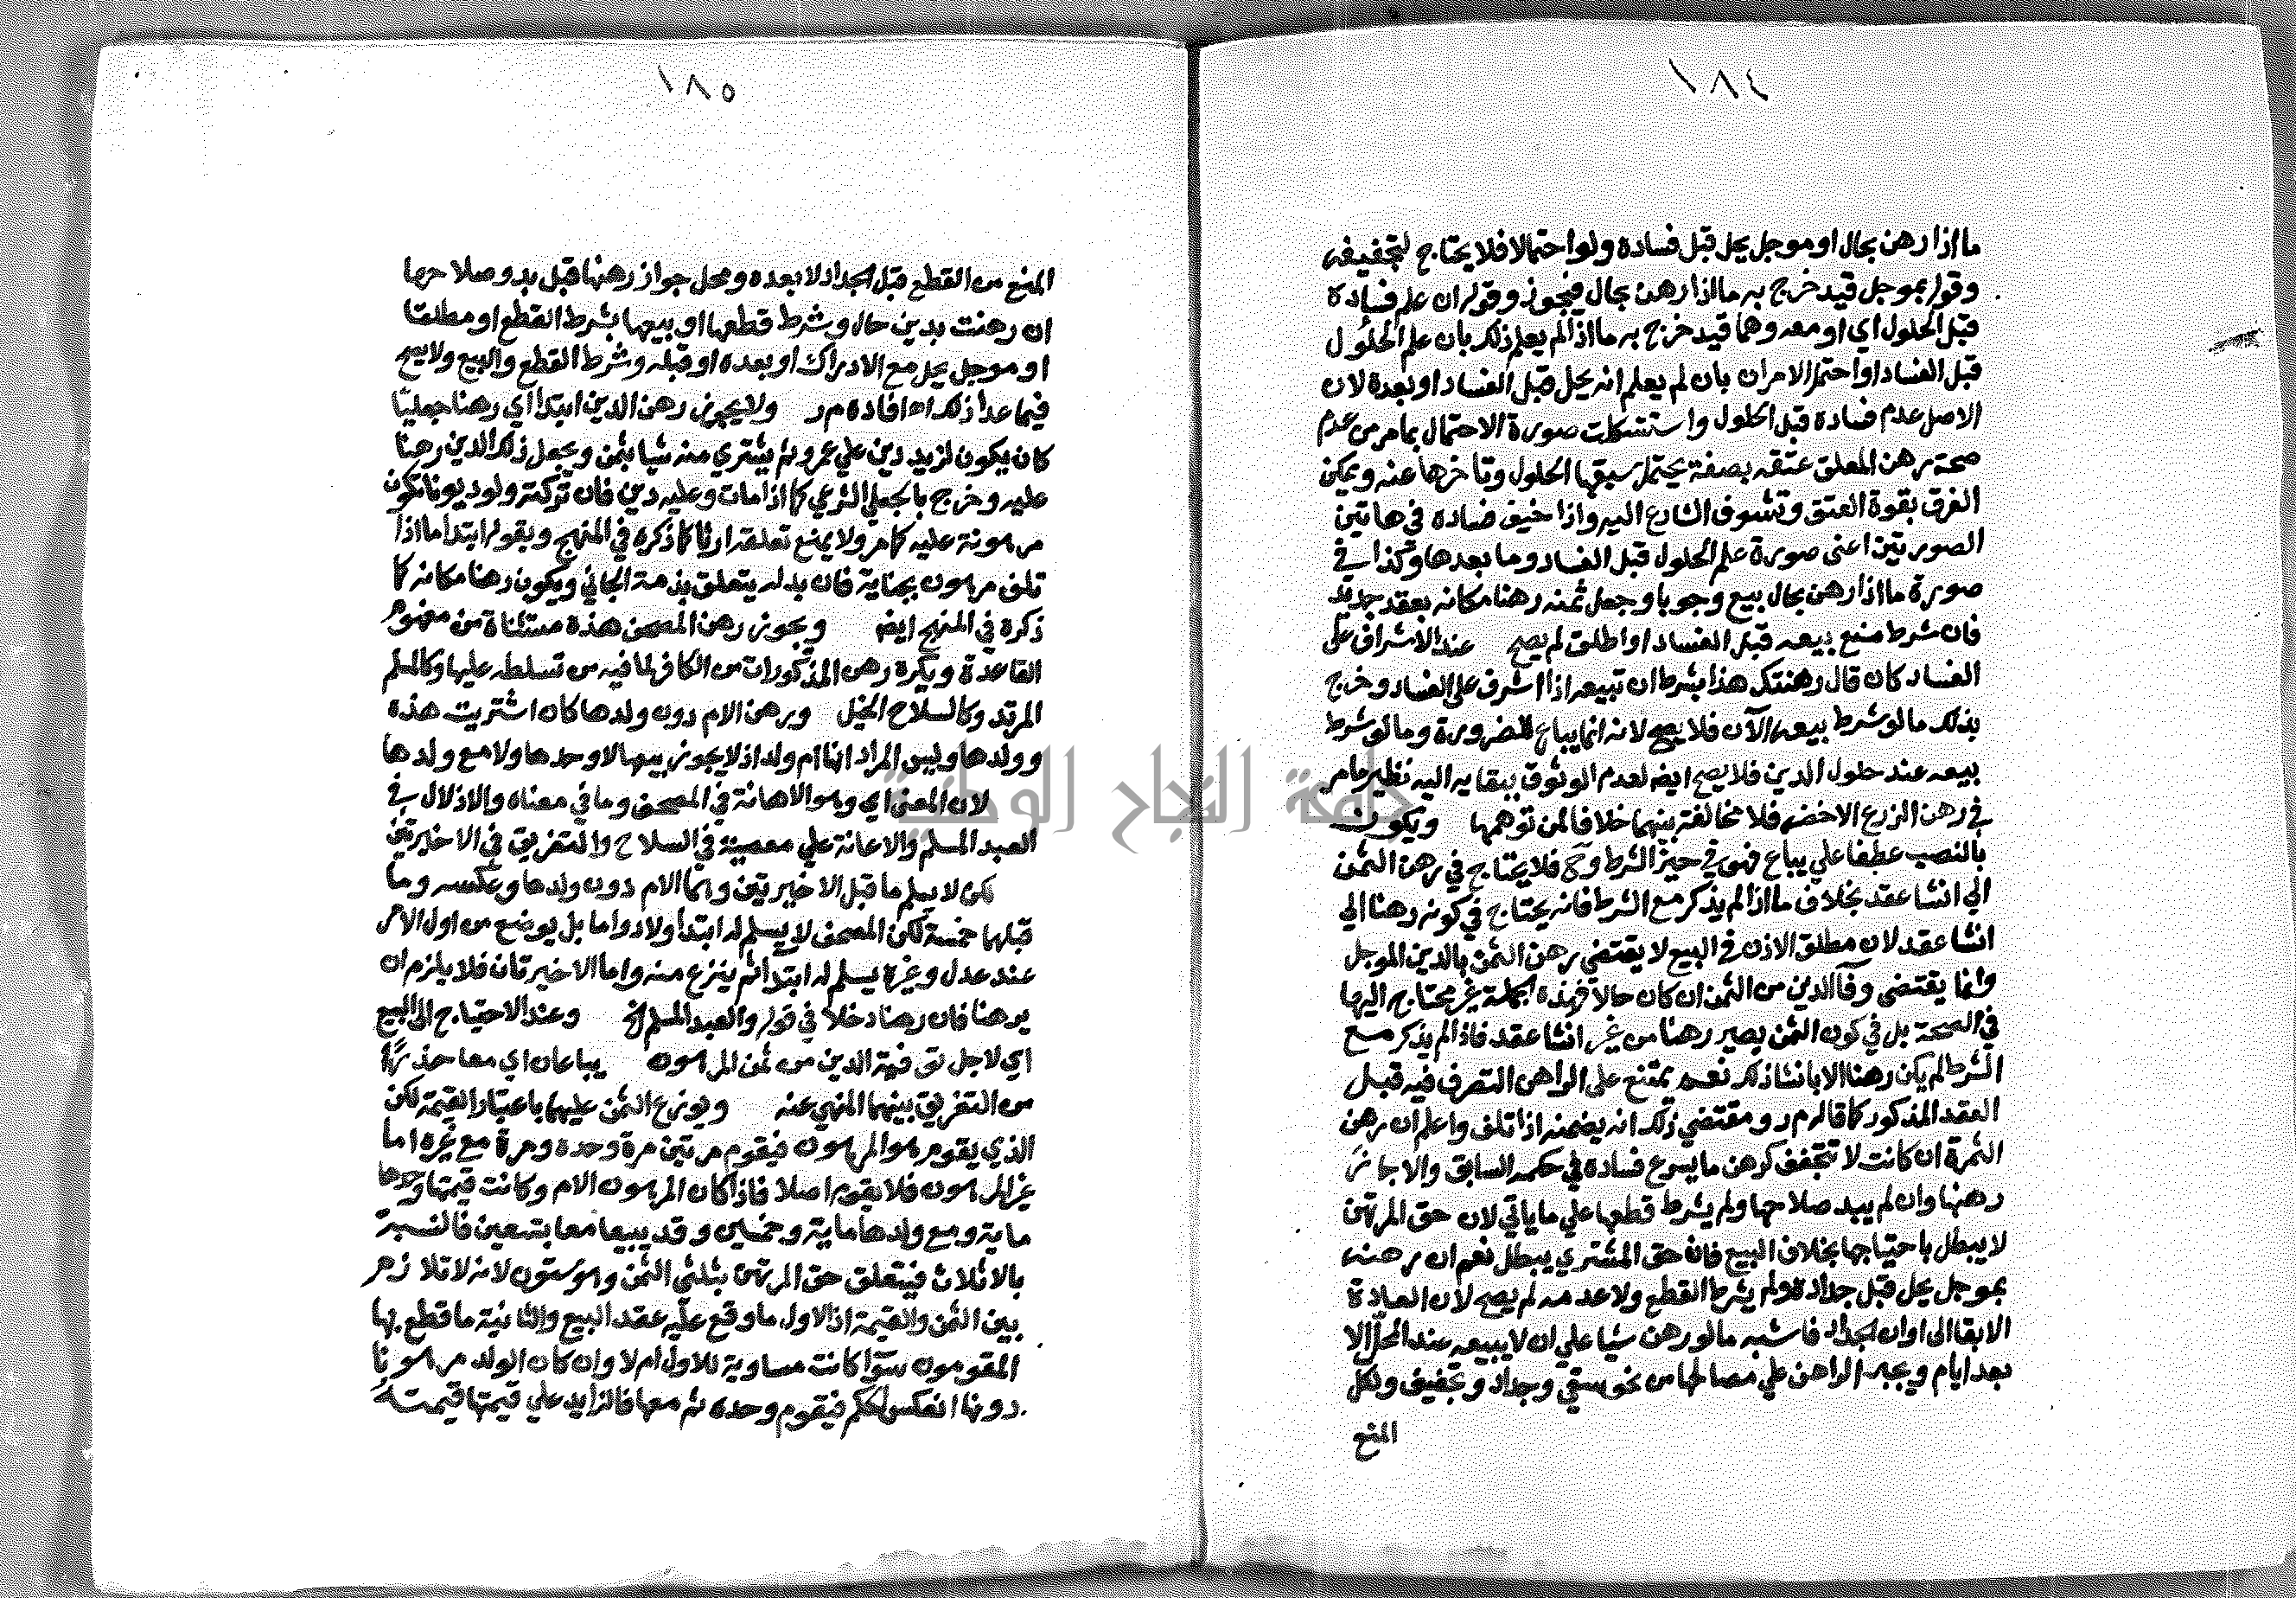 ١٨٤
ما اذا رهن بحال او موجل يحل قبل فساده ولو احتمالا فلا يحتاج لتجفيفه
وقوله بموجل قيد خرج به ما اذا رهن بحال فيجوز وقوله ان علم فساده
قبل الحلول اي او معه وهما قيد خرج به ما اذا لم يعلم ذلك بان علم الحلول
قبل الفساد او احتمل الامران بان لم يعلم انه يحل قبل الفساد او بعده لان
الاصل عدم فساده قبل الحلول واستشكلت صورة الاحتمال بما مر من عدم
صحة رهن المعلق عتقه بصفة يحتمل سبقها الحلول وتاخرها عنه ويمكن
الفرق بقوة العتق وتشوف الشارع اليه واذا خيف فساده في هاتين
الصورتين اعني صورة علم الحلول قبل الفساد وما بعدها وكذا في
صورة ما اذا رهن بحال بيع وجوبا وجعل ثمنه رهنا مكانه بعقد جديد
فان شرط منع بيعه قبل الفساد او اطلق لم يصح عند الاشراف على
الفساد كان قال رهنتك هذا بشرط ان تبيعه اذا اشرف على الفساد وخرج
بذلك ما لو شرط بيعه الآن فلا يصح لانه انما يباع للضرورة وما لو شرط
بيعه عند حلول الدين فلا يصح ايضا لعدم الوثوق ببقايه اليه نظير ما مر
في رهن الزرع الاخضر فلا مخالفة بينهما خلافا لمن توهمها ويكون
بالنصب عطفا علي يباع فهو في حيز الشرط وح فلا يحتاج في رهن الثمن
الي انشا عقد بخلاف ما اذا لم يذكر مع الشرط فانه يحتاج في كونه رهنا الي
انشا عقد لان مطلق الاذن في البيع لا يقتضي رهن الثمن بالدين الموجل
وانما يقتضي وفآ الدين من الثمن ان كان حالا فهذه الجملة غير محتاج اليها
في الصحة بل في كون الثمن يصير رهنا من غير انشا عقد فاذا لم يذكر مع
الشرط لم يكن رهنا الا بانشا ذلك نعم يمتنع على الراهن التصرف فيه قبل
العقد المذكور كما قاله م ر ومقتضي ذلك انه يضمنه اذا تلف واعلم ان رهن
الثمرة ان كانت لا تتجفف كرهن ما يسرع فساده في حكمه السابق والا جاز
رهنها وان لم يبد صلاحها ولم يشرط قطعها علي ما ياتي لان حق المرتهن
لا يبطل باحتياجها بخلاف البيع فان حق المشتري يبطل نعم ان رهنه
بموجل يحل قبل جداده ولم يشرط القطع ولا عدمه لم يصح لان العادة
الابقا الى اوان الجداد فاشبه ما لو رهن شيا علي ان لا يبيعه عند المحل الا
بعد ايام ويجبر الراهن علي مصالحها من نحو سقي وجداد وتجفيف ولكل
المنع
١٨٥
المنع من القطع قبل الجداد لا بعده ومحل جواز رهنها قبل بدو صلاحها
ان رهنت بدين حال وشرط قطعها او بيعها بشرط القطع او مطلقا
او موجل يحل مع الادراك او بعده او قبله وشرط القطع والبيع ولا يصح
فيما عدا ذلك اه افاده م ر ولا يجوز رهن الدين ابتدا اي رهنا جعليا
كان يكون لزيد دين علي عمرو ثم يشتري منه شيا بثمن ويجعل ذلك الدين رهنا
عليه وخرج بالجعلي الشرعي كما اذا مات وعليه دين فان تركته ولو ديونا تكون
مرهونة عليه كما مر ولا يمنع تعلقه ارثا كما ذكره في المنهج وبقوله ابتدا ما اذا
تلف مرهون بجناية فان بدله يتعلق بذمة الجاني ويكون رهنا مكانه كما
ذكره في المنهج ايضا ويجوز رهن المصحف هذه مستثناة من مفهوم
القاعدة ويكره رهن المذكورات من الكافر لما فيه من تسلطه عليها وكالمسلم
المرتد وكالسلاح الخيل ورهن الام دون ولدها كان اشتريت هذه
وولدها وليس المراد انها ام ولد اذ لا يجوز بيعها لا وحدها ولا مع ولدها
لان المعنى اي وهو الاهانة في المصحف وما في معناه والاذلال في
العبد المسلم والاعانة علي معصية في السلاح والتفريق في الاخيرتين
لكن لا يسلم ما قبل الاخيرتين وهما الام دون ولدها وعكسه وما
قبلها خمسة لكن المصحف لا يسلم له ابتدا ولا دواما بل يوضع من اول الامر
عند عدل وغيره يسلم له ابتدا ثم ينزع منه واما الاخيرتان فلا يلزم ان
يرهنا فان رهنا دخلا في قوله والعبد المسلم الخ وعند الاحتياج الى البيع
اي لاجل توفية الدين من ثمن المرهون يباعان اي معا حذرا
من التفريق بينهما المنهي عنه ويوزع الثمن عليهما باعتبار القيمة لكن
الذي يقوم هو المرهون فيقوم مرتين مرة وحده ومرة مع غيره اما
غير المرهون فلا يقوم اصلا فاذا كان المرهون الام وكانت قيمتها وحدها
ماية ومع ولدها ماية وخمسين وقد بيعا معا بتسعين فالنسبة
بالاثلاث فيتعلق حق المرتهن بثلثي الثمن وهو ستون لانه لا تلازم
بين الثمن والقيمة اذ الاول ما وقع عليه عقد البيع والثانية ما قطع بها
المقومون سوآ كانت مساوية للاول ام لا وان كان الولد مرهونا
دونها انعكس الحكم فيقوم وحده ثم معها فالزايد علي قيمتها قيمته
جامعة النجاح الوطنية